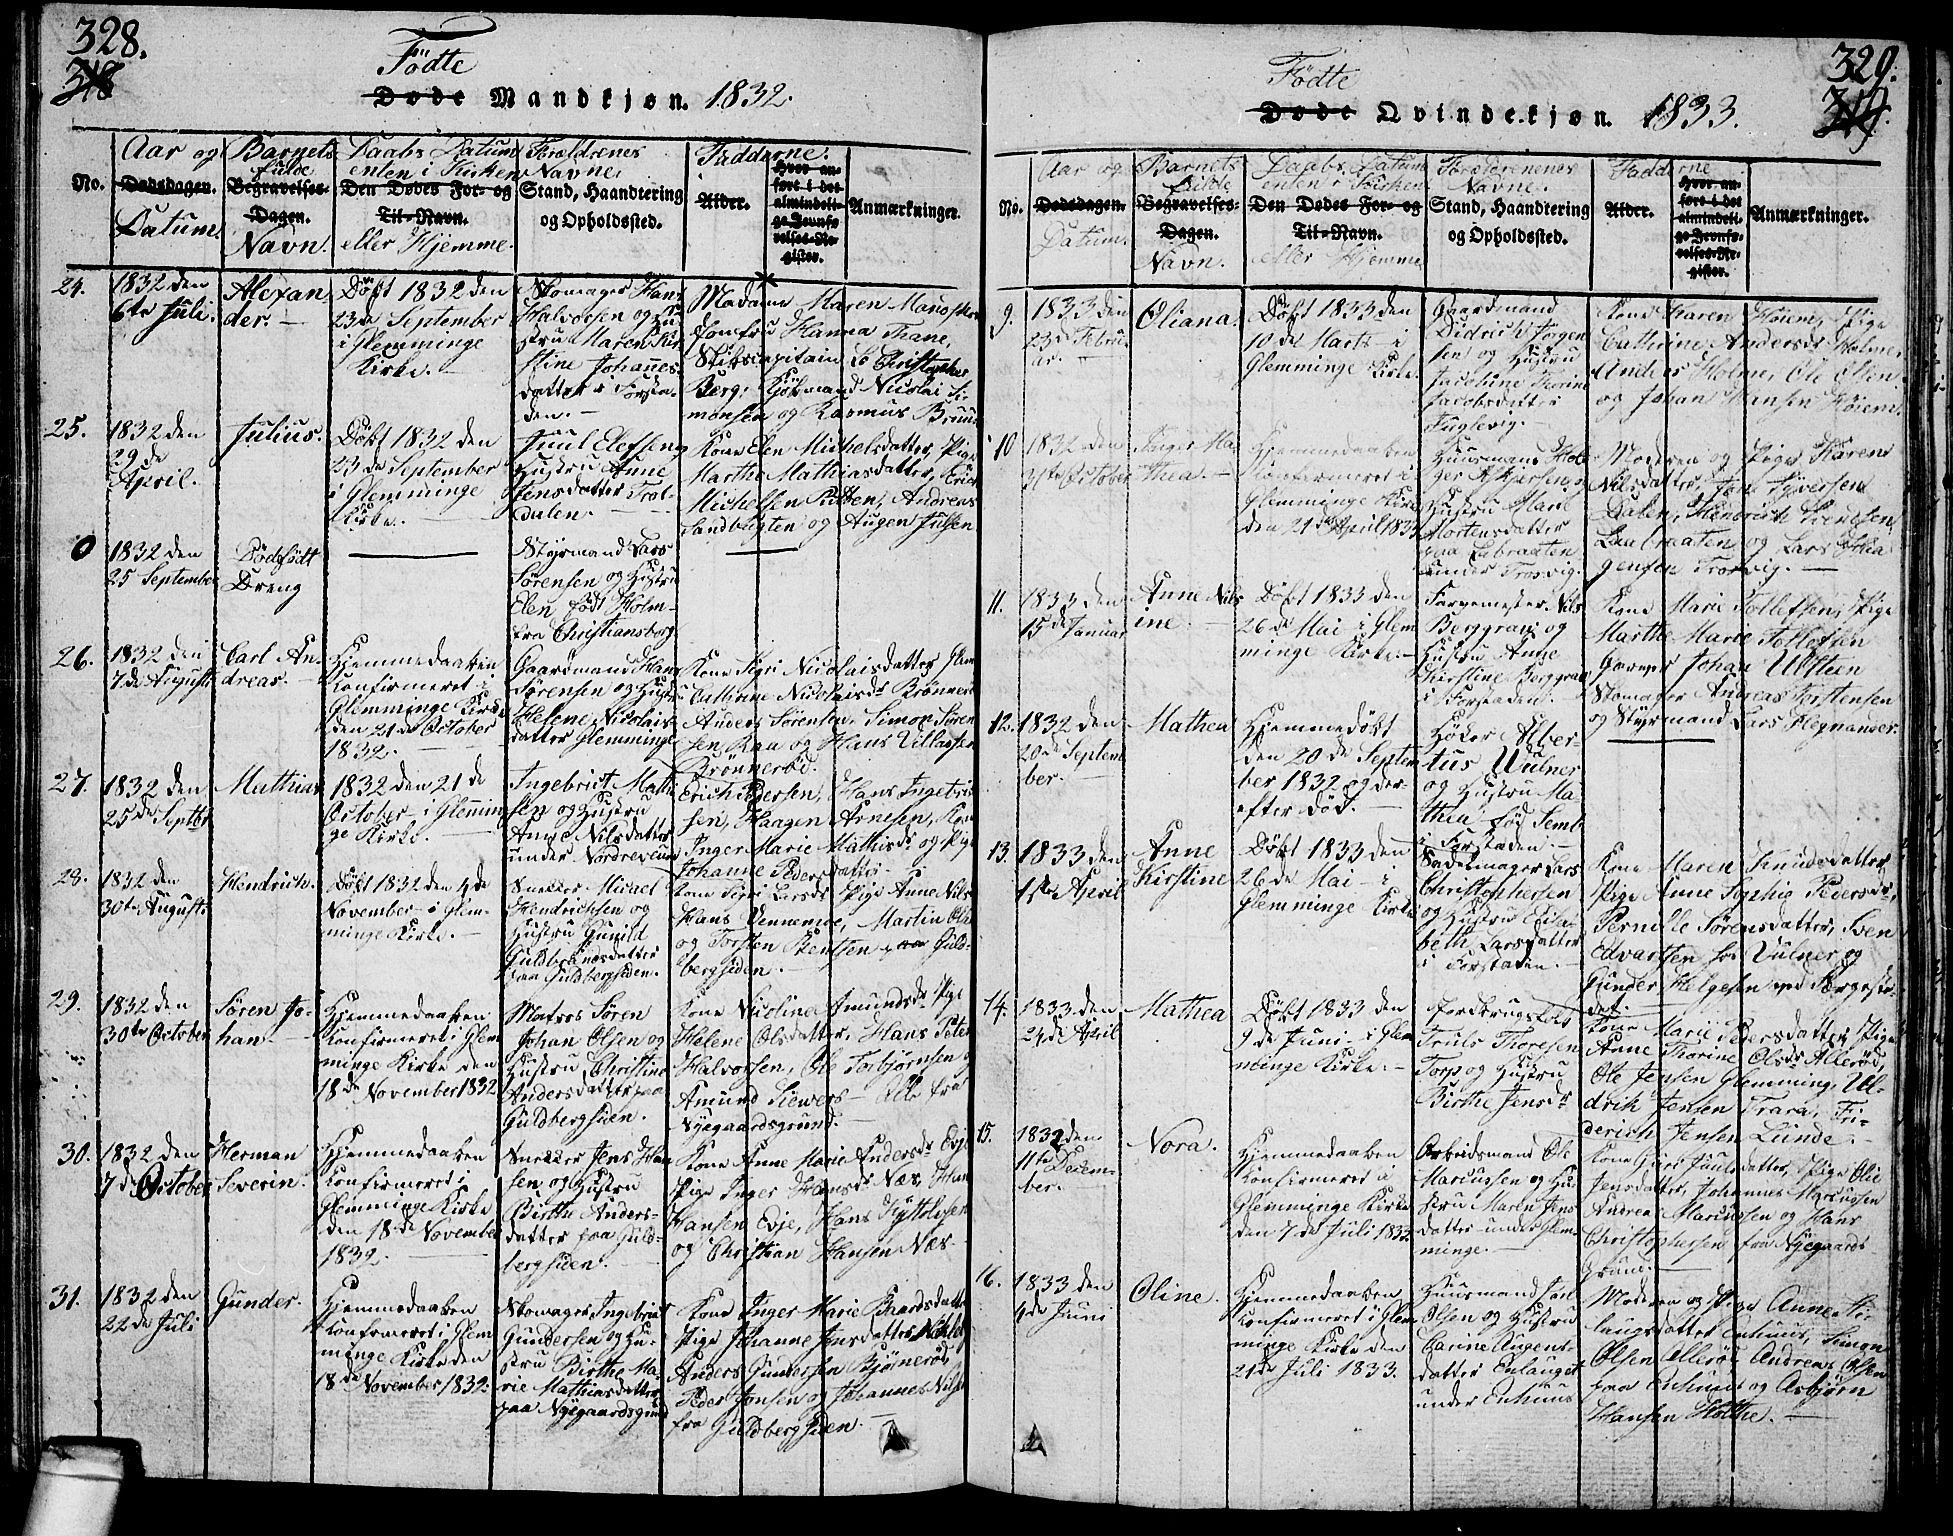 328.
318
Födte
Døde Mandkjøn. 1832.
No.
Aar og
Dødsdagen.
Datum.
Barnets
fulde
Begravelses-
Dagen.
Navn.
Daabs Datum
enten i Kirken
Den Dødes For- og
Til-Navn.
eller Hjemme.
Forældrenes
Navne,
Stand, Haandtering
og Opholdssted.
Fadderne.
Alder.
Hvor an-
ført i det
almindeli-
ge Jevnfø-
relses-Re-
gister.
Anmærkninger.
24.
1832 den
6te Juli.
Alexan
der. —
Döbt 1832 den
23de September
i Glemminge
Kirke. —
Skomager Hans
Halvorsen og Hu
stru Maren Kir
stine Johannes
datter i Forsta-
den. —
Madame Maren
Jomfru Hanna Thane,
Skibscapitain Christopher
Berg, Kjöbmand Nicolai Si
monsen og Rasmus Bruun
25.
1832 den
29de
April.
Julius.
Döbt 1832 den
23de September
i Glemminge
Kirke. —
Juul Elefsen og
Hustru Anne
Jensdatter Trol-
dalen. —
Kone Elen Michelsdatter, Pige
Marthe Mathiasdatter, Erich
Michelsen, Andreas
Sandbugten og Augen Julsen
0
1832 den
25 September
Dödfödt
Dreng
Styrmand Lars
Sörensen og Hustru
Elen, född Holm-
fra Christiansborg
26.
1832 den
7de Augusti
Carl An-
dreas. —
Hjemmedaaben
Konfirmeret i
Glemminge Kirke
den 21de October
1832.
Gaardmand Hans
Sörensen og Hustru
Helene Nicolais-
datter Glemminge
Kone Sigri Nicolaisdatter Glem
Cathrine Nicolaisdr Brönneröd
Anders Sörensen, Simon Sören
sen Raa og Hans Villassen
Brönneröd.
27.
1832 den
25de Septbr
Mathias
1832 den 21de
October i Glemmin
ge Kirke.
Ingebrict Mathi
sen og Hustru
Anne Nilsdatter
under Nordreveum
Erich Pedersen, Hans Ingebrict
sen, Haagen Arnesen, Kone
Inger Marie Mathisdr og Pige
Johanne Pedersdatter
28.
1832 den
30te Augusti
Hendrich.
Döbt 1832 den 4de
November i Glem-
minge Kirke. —
Snekker Micael
Hendrichsen og
Hustru Gunild
Guldbrandsdatter
paa Guldbergsiden.
Kone Sigri Larsdr Pige Anne Nils
Hans Vennemoe, Martin
og Torsten Bentsen paa Guld-
bergsiden. —
29.
1832 den
30te October
Sören Jo-
han —
Hjemmedaaben
Konfirmeret i Glem
minge Kirke den
18de November 1832
Matros Sören
Johan Olsen og
Hustru Christine
Andersdatter paa
Guldbergsiden.
Kone Nicolina Amundsdr Pige
Helene Olsdatter, Hans Peter
Halvorsen, Ole Torbjörnsen og
Amund Siewers — Alle fra
Nyegaardsgrund. —
30.
1832 den
7de October
Herman
Severin.
Hjemmedaaben
Konfirmeret i
Glemminge Kirke
den 18de November
1832.
Snekker Jens Han
sen og Hustru
Birthe Anders-
datter paa Guld-
bergsiden.
Kone Anne Marie Andersdr Evje
Pige Inger Hansdr Næs, Hans
Hansen Evje, Hans Kyttelsen
og Christian Hansen Næs. —
31.
1832 den
22de Juli
Gunder.
Hjemmedaaben
Konfirmeret i Glem
minge Kirke den
18de November 1832.
Skomager Ingebrict
Gundersen og Hu-
stru Birthe Ma-
rie Mathiasdatter
paa Nyegaardsgrund
Kone Inger Marie Baardsdatter
Pige Johanne Jensdatter
Anders Gundersen Bjørneröd
Peder Jonsen og Johannes Nilsen
fra Guldbergsien. —
329.
319.
Födte
Døde Qvindekjøn. 1833.
No.
Aar og
Dødsdagen.
Datum.
Barnets
fulde
Begravelses-
Dagen.
Navn.
Daabs Datum
enten i Kirken
Den Dødes For- og
Til-Navn.
eller Hjemme
Forældrenes
Navne.
Stand, Haandtering
og Opholdssted.
Fadderne
Alder.
Hvor an-
ført i det
almindeli-
ge Jevnfø-
relses-Re-
gister.
Anmærkninger.
9.
1833 den
23de Febru
ar.
Oliana.
Döbt 1833 den
10de Marts i
Glemminge Kirke
Gaardmand
Didrich Jörgen
sen og Hustru
Jacobine Thorine
Jacobsdatter
Fuglevig. —
Kone Karen Höiem, Pige
Cathrine Andersdr Holme,
Anders Holme, Ole Olsen
og Johan Hansen Höiem
10
1832 den
31te October
Inger Ma
thea. —
Hjemmedaaben
Konfirmeret i
Glemminge Kirke
den 21de April 1833
Huusmand Hol-
ger Askjersen og
Hustru Marie
Mortensdatter
paa Labraaten
under Trosvig.
Moderen og Pige Karen
Nilsdatter, Jon Syversen
Dalen, Hendrich Svendsen
Laabraaten og Lars
gensen Trosvig. —
11.
1833 den
15de Januar
Anne Nils
ine. —
Döbt 1833 den
26de Mai i Glem
minge Kirke. —
Farvemester Nils
Berggrav og
Hustru Anne
Kirstine Berggrav
i Forstaden.
Kone Marie Tollefsen, Pige
Marthe Marie Tollefsen
Garver Johan Ulsteen
Skomager Andreas Torstensen
og Styrmand Lars Hegnander.
12.
1832 den
20de Septem
ber.
Mathea
Hjemmedöbt
den 20de Septem
ber 1832 og der-
efter död. —
Höker Alber-
tus Wulner
og Hustru Ma
thea föd Semb
i Forstaden. —
13.
1833 den
1ste April
Anne
Kirstine
Döbt 1833 den
26de Mai — i
Glemminge Kirke
Sadelmager Lars
Christophersen
og Hustru Elisa
beth Larsdatter
i Forstaden. —
Kone Maren Knudsdatter
Pige Anne Sophia Pedersdr,
Pernille Sörensdatter, Sven
Edvartsen hos Vulner og
Gunder Helgesen ved Færgeste-
det.
14.
1833 den
24de April
Mathea
Döbt 1833 den
9de Juni i Glem
minge Kirke. —
Jordbrugsfolk
Truls Thoresen
Torp og Hustru
Birthe Jensdr
Kone Marie Pedersdatter, Pige
Anne Thorine Olsdr Alleröd,
Ole Jensen Glemming, Ul-
drik Jensen Trara, Fri-
derich Jensen Lunde. —
15.
1832 den
11te Decem-
ber.
Nora.
Hjemmedaaben
Konfirmeret i
Glemminge Kirke
den 7de Juli 1833.
Arbeidsmand Ole
Marcussen og Hu-
stru Maren Jens
datter under Glem-
minge. —
Kone Guri Juulsdatter, Pige Olia
Jensdatter, Johannes Marcussen
Andreas Marcussen og Hans
Christophersen fra Nyegaards
Grund. —
16.
1833 den
4de Juni
Oline.
Hjemmedaaben
Konfirmeret i Glem
minge Kirke den
21de Juli 1833.
Huusmand Carl
Olsen og Hustru
Carine Augens-
datter Enlauget
under Enhuus
Moderen og Pige Anne Si-
laugsdatter Enhuus, Simon
Olsen Alleröd, Andreas Olsen
paa Enhuus og Asbjörn
Hansen Holthe. —